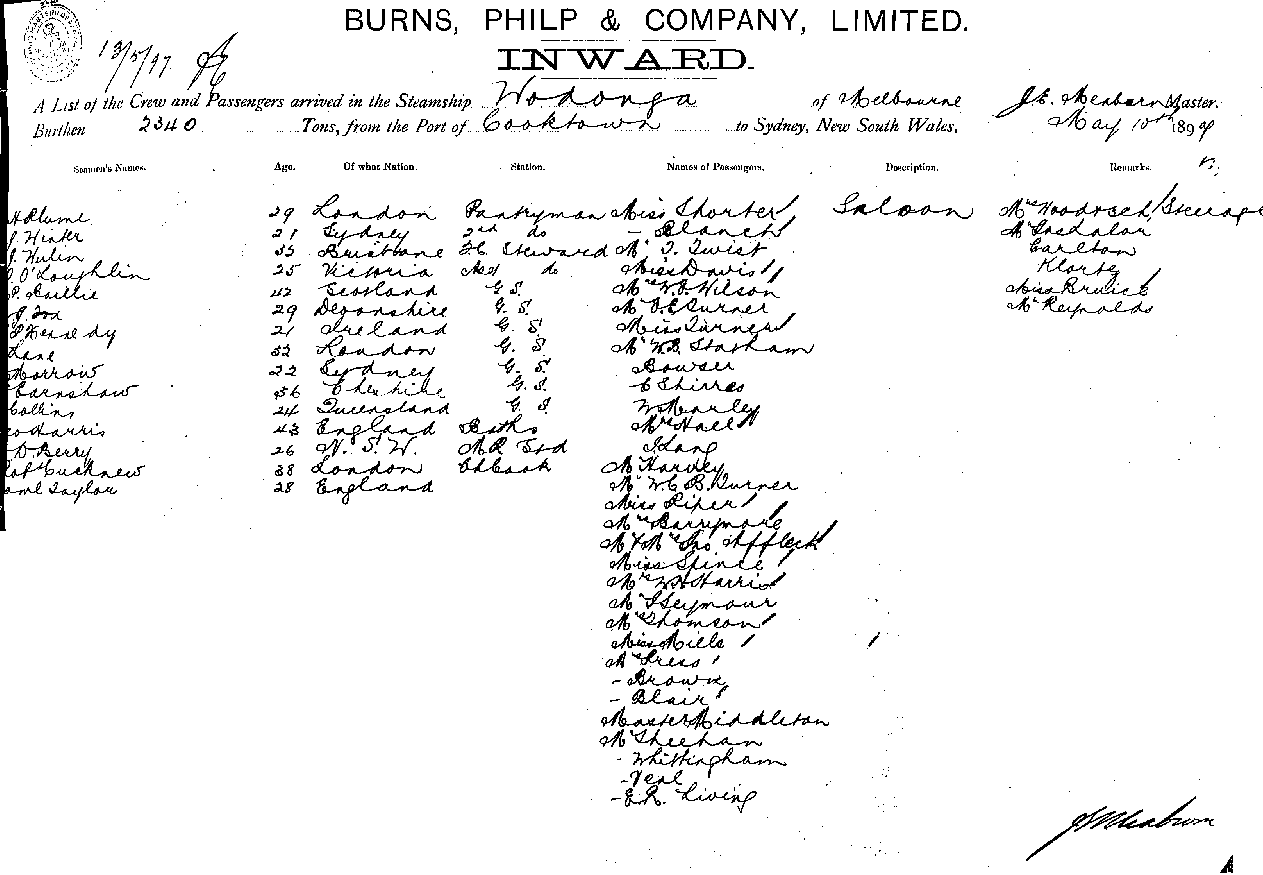 BURNS, PHILP & COMPANY, LIMITED.
INWARD.
13/5/97
A List of the Crew and Passengers arrived in the Steamship Wodonga of Melbourne J.E. Meaburn Master.
Burthen 2340 Tons, from the Port of Cooktown to Sydney, New South Wales, May 10th 189
Seamen's Names. Age. Of what Nation. Station. Names of Passengers. Description. Remarks.
H Plume 29 London Pantryman Miss Shorter Saloon Steerage
J. Winter 21 Sydney 2nd do - Blanch
J. Hulin 33 Brisbane F.C. Steward Mr T. Twist Carlton
O'Loughlin 25 Victoria do Miss Davis
P. Baillie 42 Scotland G.S. Mrs W.J. Wilson Miss
J. Fox 29 Devonshire G.S. Turner Mr Reynolds
P Kennedy 21 Ireland G.S. Miss Turner
Lane 32 London G.S. Mr W.B. Statham
Morrow 22 Sydney G.S. Bowser
Earnshaw 36 Cheshire G.S. C Shirres
Collins 24 Queensland G.S. W Marley
Harris 43 England Baths Mrs Hall
D. Berry 26 N.S.W. J. Lang
Cucknew 38 London Ch Cook Mr Harvey
Saml Taylor 28 England Mr W.C.B. Turner
Miss Piper
Mrs Barrymore
Mr & Mrs Jno Affleck
Miss Spence
Mrs W Harris
Mr J Seymour
Mrs Thomson
Miss Mills
Press
- Brown
- Blair
Master Middleton
Mr Sheehan
- Whittingham
- Veal
- E.R. Living
J E Meaburn